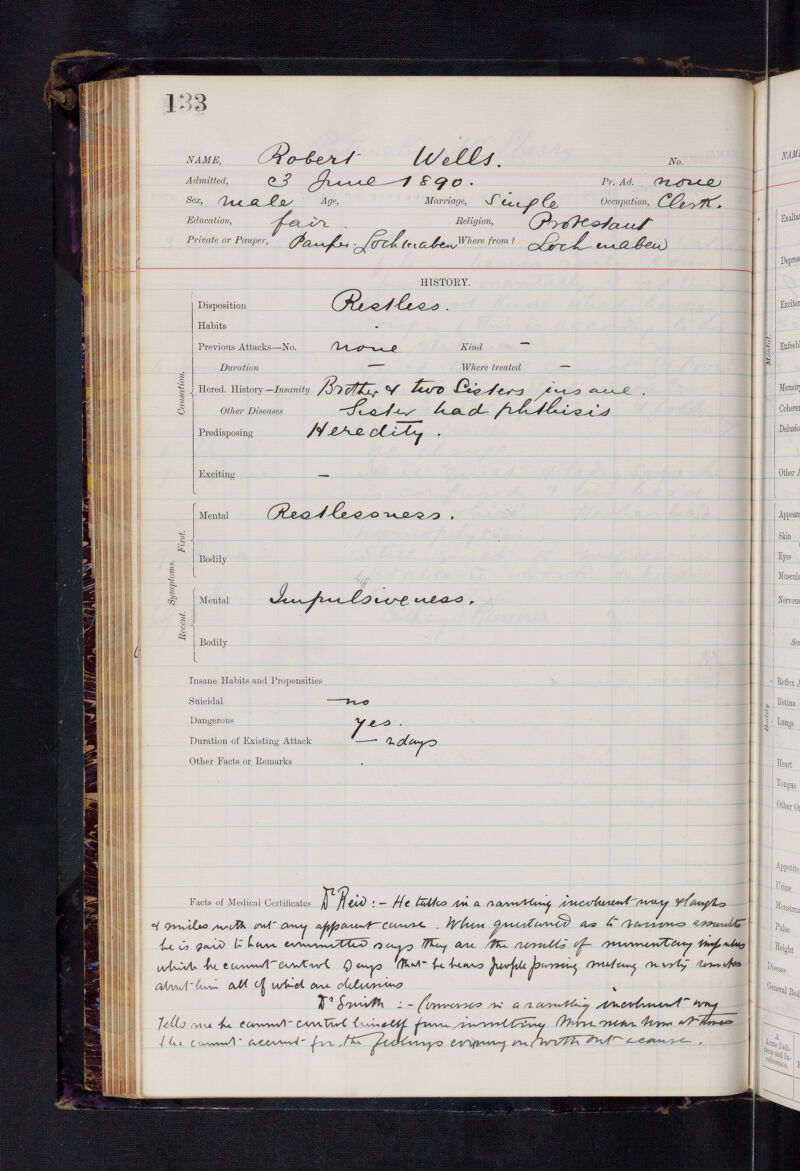 133
NAME, Robert Wells. No.
Admitted, 3 June 1890. Pr. Ad. none
Sex, male Age, Marriage, Single Occupation, Clerk.
Education, fair. Religion, Protestant
Private or Pauper, Pauper. Lochmaben Where from? Lochmaben
HISTORY.
Disposition Restless.
Habits
Previous Attacks—No. none Kind —
Duration — Where treated —
Hered. History—Insanity Brother & two Sisters insane.
Other Diseases Sister had phthisis
Predisposing Heredity.
Exciting —
Causation.
Mental Restlessness.
Bodily
First.
Symptoms.
Mental Impulsiveness.
Bodily
Recent.
Insane Habits and Propensities
Suicidal — no
Dangerous yes.
Duration of Existing Attack — 2 days
Other Facts or Remarks
Facts of Medical Certificates Dr Reid :- He talks in a rambling incoherent way & laughs
& smiles with out any apparent cause. When questioned as to various assaults
he is said to have committed says they are the results of momentary impulses
which he cannot control Says that he hears people passing making nasty remarks
about him all of which are delusions
Dr Smith :- Converses in a rambling incoherent way
Tells me he cannot control himself from insulting those near him at times
& he cannot account for the feelings coming on with out a cause.
NAM
Mental.
Exalta
Depres
Excite
Enfeebl
Memory
Coheren
Delusio
Other A
Appear
Skin
Eyes
Muscula
Nervous
Reflex A
Retina
Lungs
Bodily
Heart
Tongue
Other Or
Appetite
Urine
Menstrua
Pulse
Height
Disease
General Bod
A
Acute Deli-
rious and In-
coherence.